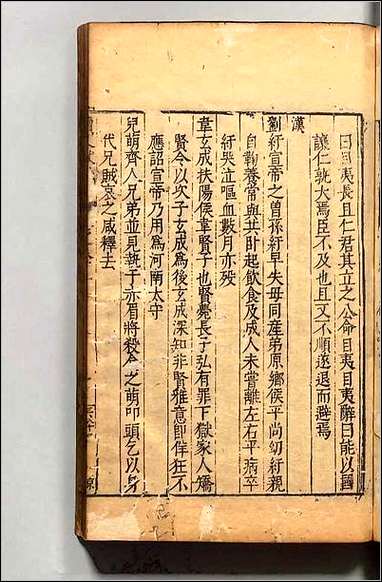 曰目夷長且仁君其立之公命目夷目夷辭曰能以國
讓仁孰大焉臣不及也且又不順遂退而避焉
漢
劉紆宣帝之曾孫紆早失母同産弟原鄉侯平尚幼紆親
自鞠養常與共卧起飲食及成人未嘗離左右平病卒
紆哭泣嘔血數月亦歿
韋玄成扶陽侯韋賢子也賢薨長子弘有罪下獄家人矯
賢令以次子玄成爲後玄成深知非賢雅意即佯狂不
應詔宣帝乃用爲河南太守
兒萌齊人兄弟並見執于赤眉將殺食之萌叩頭乞以身
代兄賊哀之咸釋去